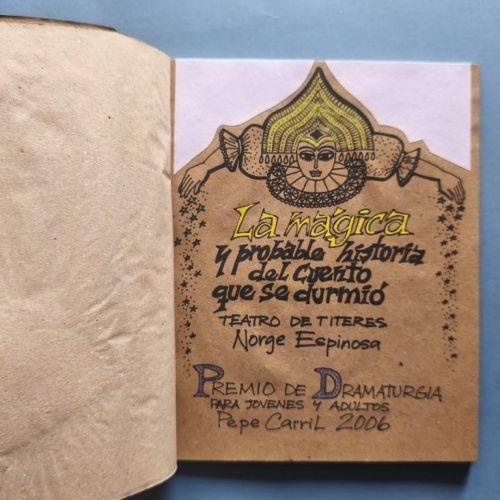 La mágica
y probable historia
del cuento
que se durmió
TEATRO DE TITERES
Norge Espinosa
PREMIO DE DRAMATURGIA
PARA JOVENES Y ADULTOS
Pepe Carril 2006